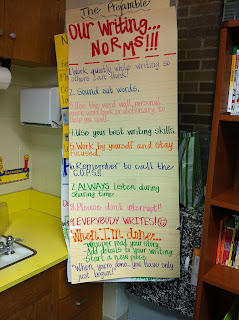 The Preamble
Our Writing...
NORMS!!!
1. Work quietly while writing so
others can think!
2. Sound out words.
3. Use the word wall, personal
word work book or dictionary to
help you spell.
4. Use your best writing skills.
5. Work by yourself and stay
focused.
6. Remember to call the
C.O.P.S.!!
7. ALWAYS listen during
sharing time.
8. Please don't interrupt!!
9. EVERYBODY WRITES!
When I'm done...
Whisper read your story.
Add details to your writing
Start a new piece.
"When you're done...you have only
just begun!"